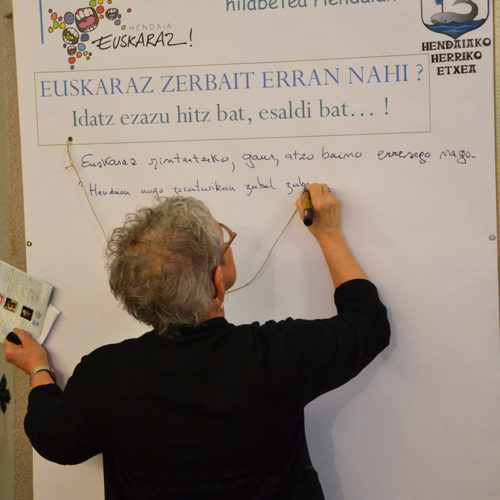 hilabetea Hendaian
HENDAIA
EUSKARAZ!
HENDAIAKO
HERRIKO
ETXEA
EUSKARAZ ZERBAIT ERRAN NAHI ?
Idatz ezazu hitz bat, esaldi bat… !
Euskaraz mintzatzeko, gaur, atzo baino errezago nago.
Hendaian nago zoraturikan zabal